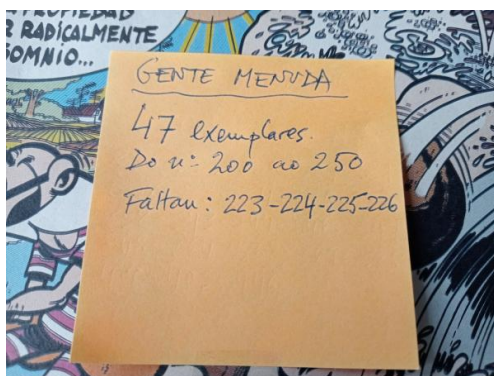 PROPIEDAD
R RADICALMENTE
SOMNIO...
GENTE MENUDA
47 exemplares.
Do nº 200 ao 250
Faltan: 223-224-225-226